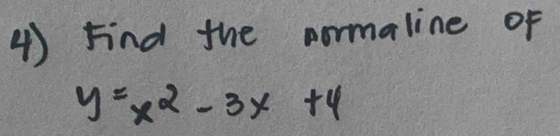 4) Find the normaline OF
y = x2 - 3x + 4